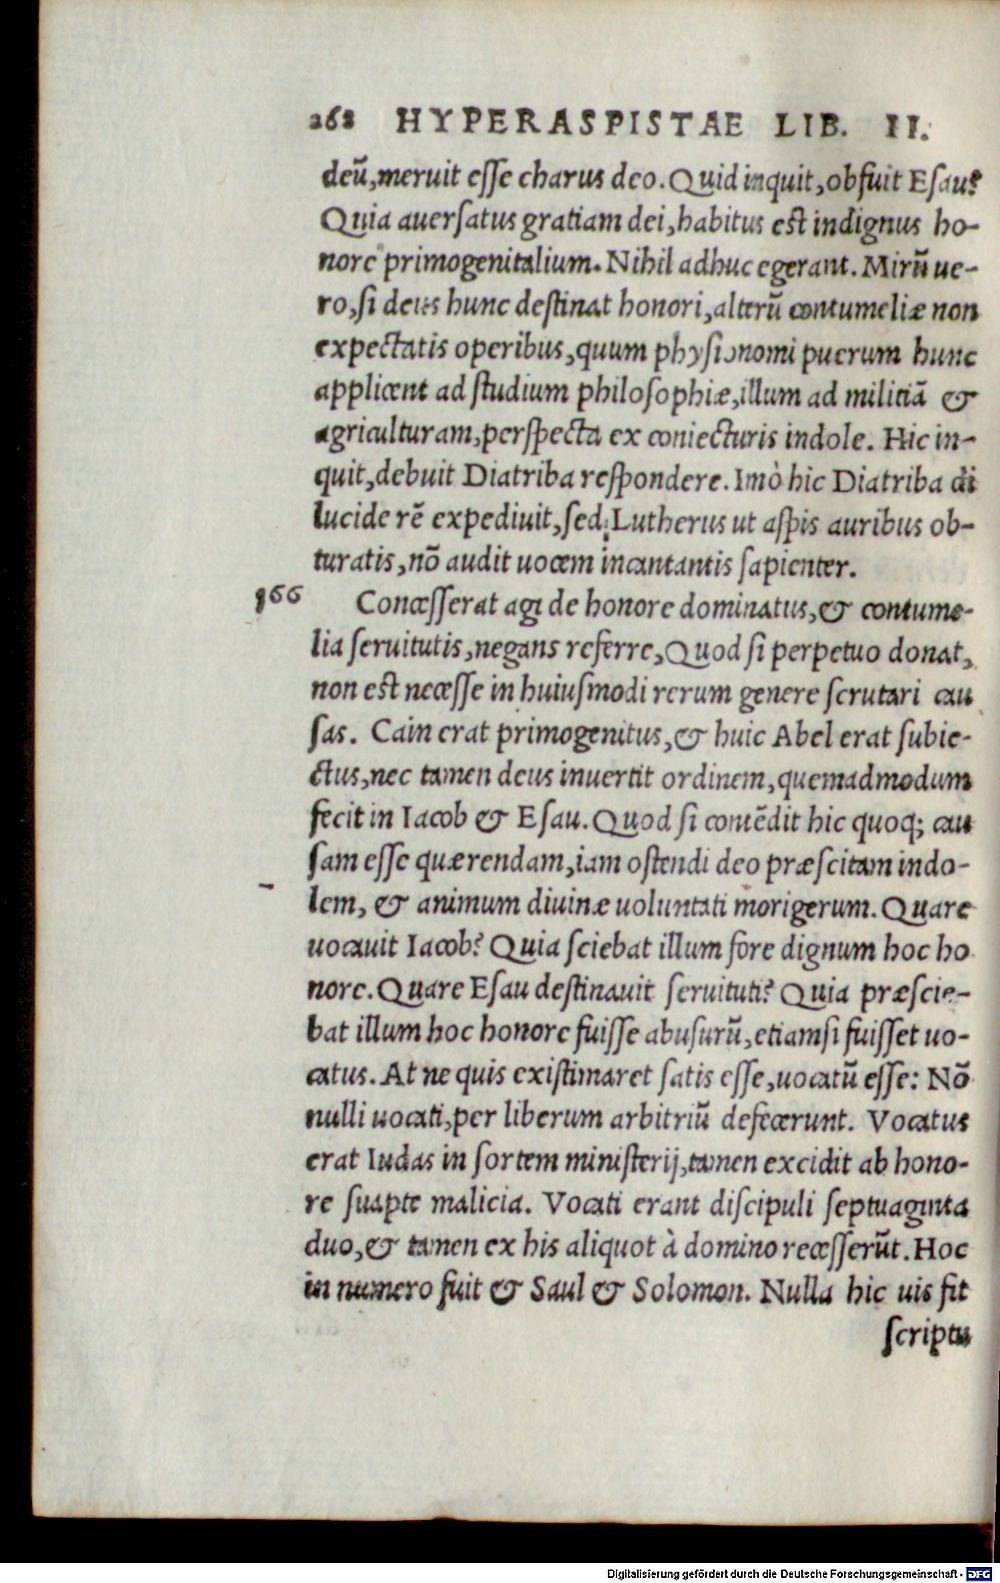 268 HYPERASPISTAE LIB. II.
deū, meruit esse charus deo. Quid inquit, obfuit Esau?
Quia auersatus gratiam dei, habitus est indignus ho-
nore primogenitalium. Nihil adhuc egerant. Mirū ue-
ro, si deus hunc destinat honori, alterū contumeliæ non
expectatis operibus, quum physionomi puerum hunc
applicent ad studium philosophiæ, illum ad militiā &
agriculturam, perspecta ex coniecturis indole. Hic in-
quit, debuit Diatriba respondere. Imò hic Diatriba di
lucide rē expediuit, sed Lutherus ut aspis auribus ob-
turatis, nō audit uocem incantantis sapienter.
166 Concesserat agi de honore dominatus, & contume-
lia seruitutis, negans referre, Quod si perpetuo donat,
non est necesse in huiusmodi rerum genere scrutari cau
sas. Cain erat primogenitus, & huic Abel erat subie-
ctus, nec tamen deus inuertit ordinem, quemadmodum
fecit in Iacob & Esau. Quod si contēdit hic quoq; cau
sam esse quærendam, iam ostendi deo præscitam indo-
lem, & animum diuinæ uoluntati morigerum. Quare
uocauit Iacob? Quia sciebat illum fore dignum hoc ho
nore. Quare Esau destinauit seruituti? Quia præscie-
bat illum hoc honore fuisse abusurū, etiamsi fuisset uo-
catus. At ne quis existimaret satis esse, uocatū esse: Nō
nulli uocati, per liberum arbitriū defecerunt. Vocatus
erat Iudas in sortem ministerij, tamen excidit ab hono-
re suapte malicia. Vocati erant discipuli septuaginta
duo, & tamen ex his aliquot à domino recesserūt. Hoc
in numero fuit & Saul & Solomon. Nulla hic uis fit
scriptu
Digitalisierung gefördert durch die Deutsche Forschungsgemeinschaft - DFG